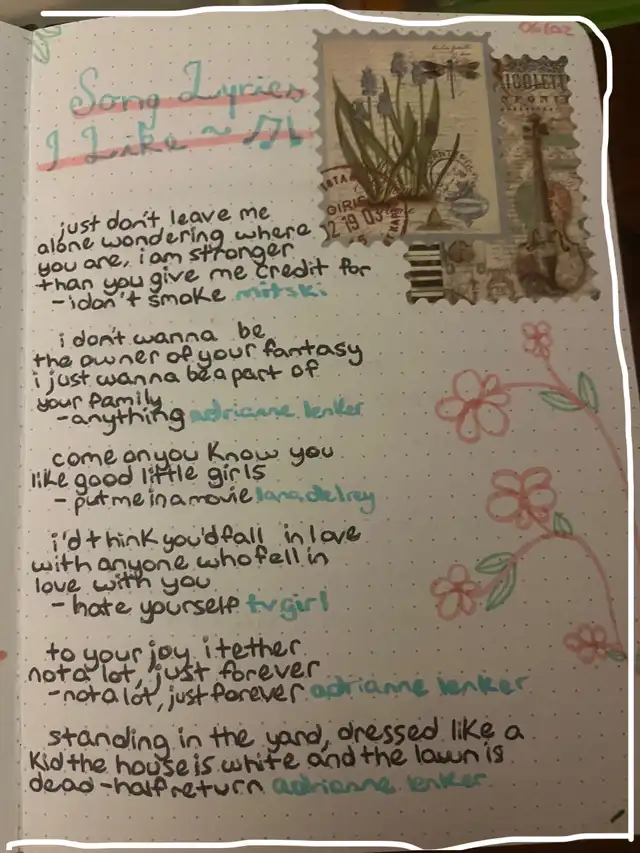 06/02
Song Lyrics
I Like ~
just don't leave me
alone wondering where
you are, i am stronger
than you give me credit for
- i don't smoke mitski
i don't wanna be
the owner of your fantasy
i just wanna be a part of
your family
- anything adrianne lenker
come on you know you
like good little girls
- put me in a movie lana del rey
i'd think you'd fall in love
with anyone who fell in
love with you
- hate yourself tv girl
to your joy i tether
not a lot, just forever
- not a lot, just forever adrianne lenker
standing in the yard, dressed like a
kid the house is white and the lawn is
dead - half return adrianne lenker